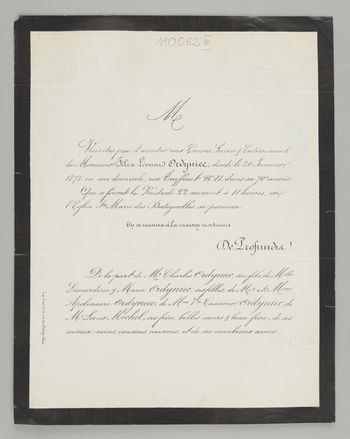 110062 III
M
Vous êtes prié d'assister aux Convoi, Service & Enterrement
de Monsieur Félix Léonard Ordyniec, décédé le 20 Janvier
1875, en son domicile, rue Truffaut No 11, dans sa 70e année
Qui se feront le Vendredi 22 courant à 11 heures, en
l'Eglise Ste Marie des Batignolles, sa paroisse.
On se réunira à la maison mortuaire
De Profundis !
De la part de Mr Charles Ordyniec, son fils, de Melles
Léonardine & Marie Ordyniec, ses filles, de Mr & Mme
Apolinaire Ordyniec, de Mme Vve Casimir Ordyniec, de
Mr Louis Michel, ses frère, belles sœurs & beau frère, de ses
neveux, nièces, cousins, cousines, et de ses nombreux amis